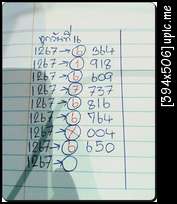 ทุกวันที่ 16
1267→6 364
1267→1 918
1267→6 609
1267→7 737
1267→6 816
1267→6 764
1267→X 004
1267→6 650
1267→
[394x506] upic.me